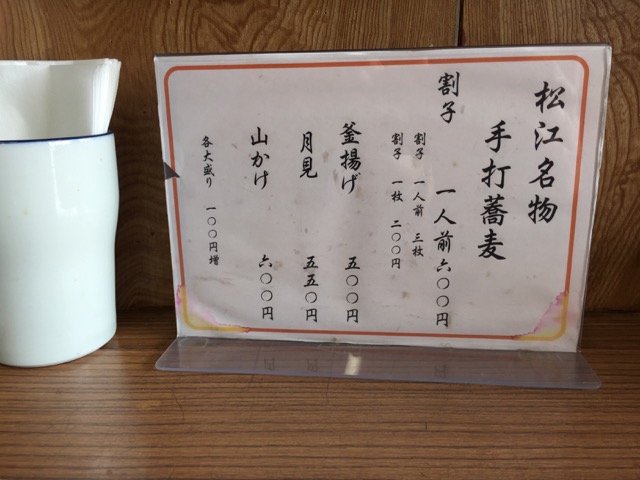 松江名物
手打蕎麦
割子 一人前 六〇〇円
割子 一人前 三枚
割子 一枚 二〇〇円
釜揚げ 五〇〇円
月見 五五〇円
山かけ 六〇〇円
各大盛り 一〇〇円増